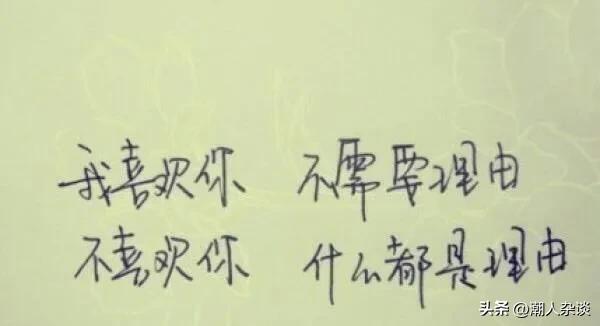 我喜欢你 不需要理由
不喜欢你 什么都是理由
头条 @潮人杂谈